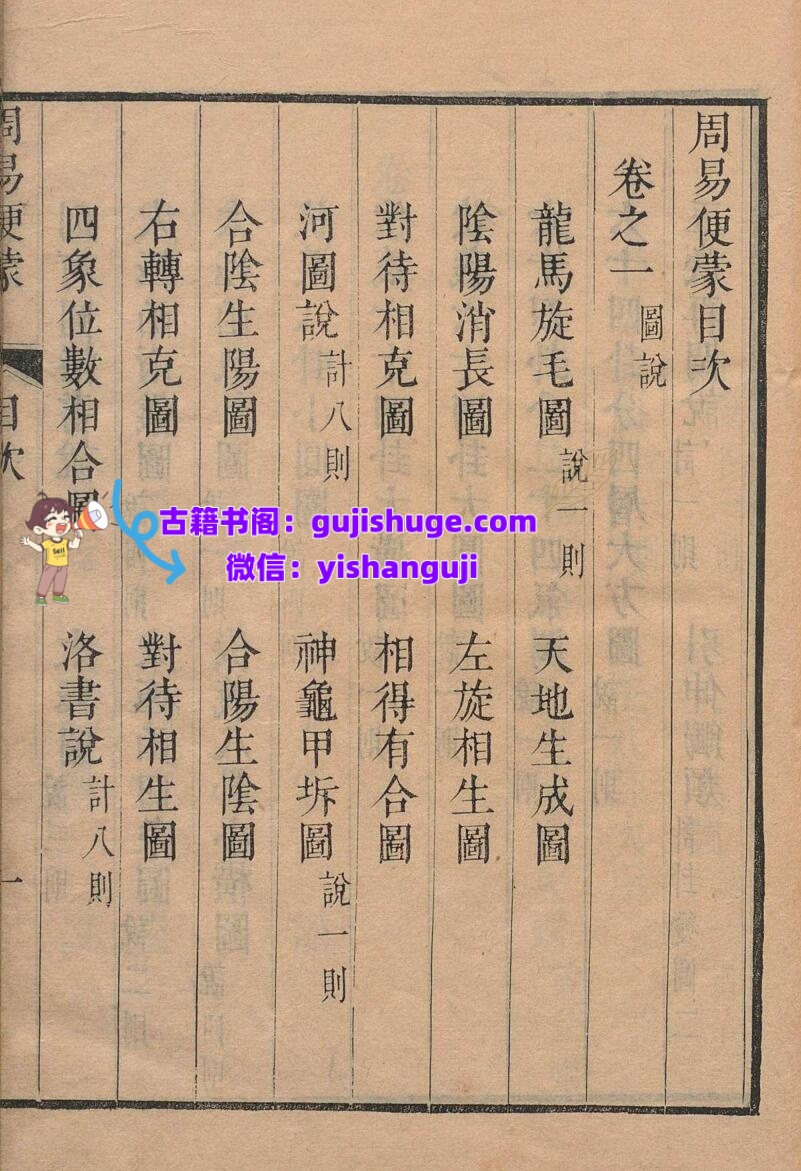 周易便蒙目次
卷之一 圖說
龍馬旋毛圖 說一則 天地生成圖
陰陽消長圖 左旋相生圖
對待相克圖 相得有合圖
河圖說 計八則 神龜甲坼圖 說一則
合陰生陽圖 合陽生陰圖
右轉相克圖 對待相生圖
四象位數相合圖 洛書說 計八則
周易便蒙 目次 一
古籍书阁：gujishuge.com
微信：yishanguji
Sell